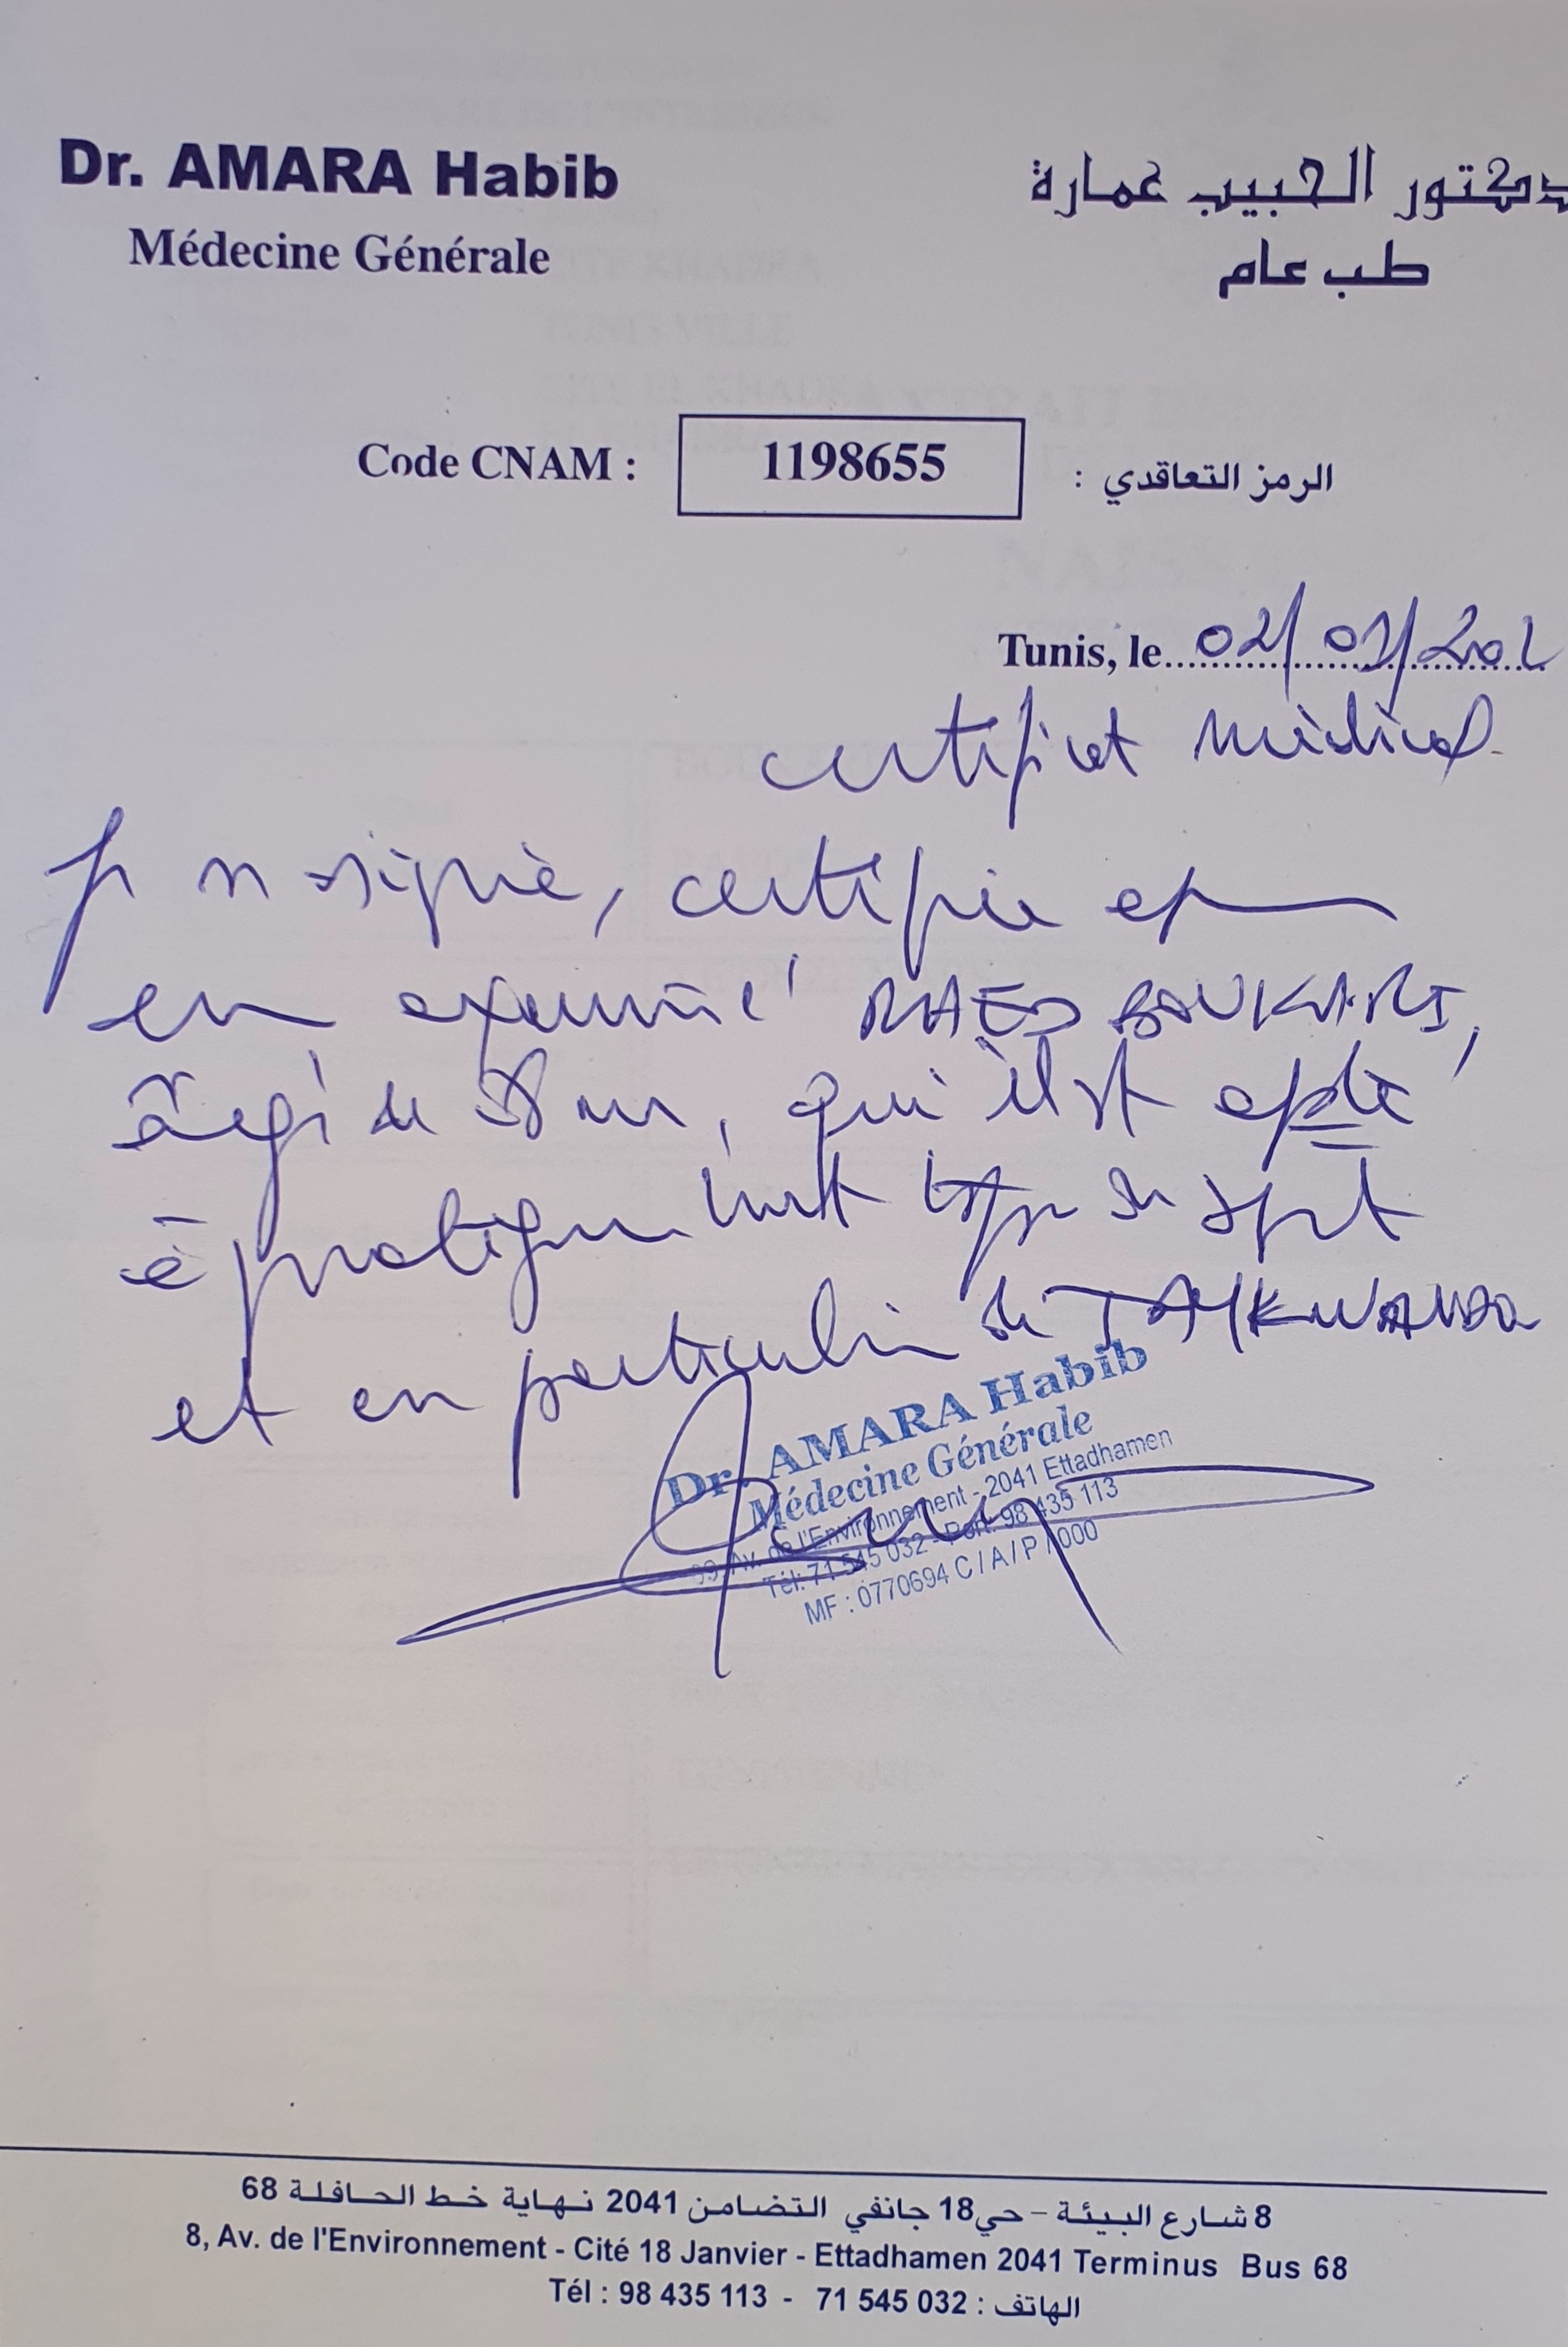 Dr. AMARA Habib
Médecine Générale
دكتور الحبيب عمارة
طب عام
Code CNAM : 1198655 الرمز التعاقدي :
Tunis, le 02/01/202
certificat médical
Je signé, certifie
examiné RAED BOUKARI,
âgé de ans, qu'il est apte
à pratiquer tout type de sport
et en particulier de TAYKWANDO
Dr. AMARA Habib
Médecine Générale
Av. de l'Environnement - 2041 Ettadhamen
Tél: 71 545 032 - Port: 98 435 113
MF : 0770694 C / A / P / 000
8 شارع البيئة - حي 18 جانفي التضامن 2041 نهاية خط الحافلة 68
8, Av. de l'Environnement - Cité 18 Janvier - Ettadhamen 2041 Terminus Bus 68
Tél : 98 435 113 - 71 545 032 : الهاتف